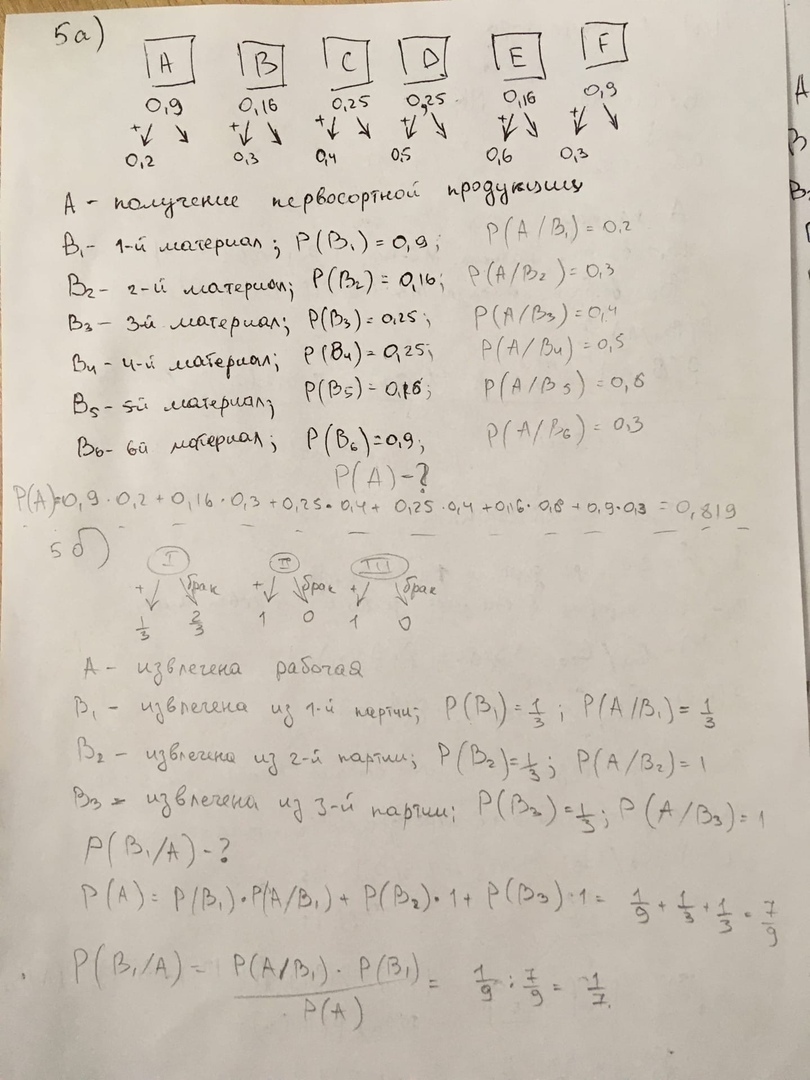 5а)
A B C D E F
0,9 0,16 0,25 0,25 0,16 0,9
+ + + + + +
0,2 0,3 0,4 0,5 0,6 0,3
А - получение первосортной продукции
B₁ - 1-й материал; P(B₁) = 0,9; P(A/B₁) = 0,2
B₂ - 2-й материал; P(B₂) = 0,16; P(A/B₂) = 0,3
B₃ - 3-й материал; P(B₃) = 0,25; P(A/B₃) = 0,4
B₄ - 4-й материал; P(B₄) = 0,25; P(A/B₄) = 0,5
B₅ - 5й материал; P(B₅) = 0,16; P(A/B₅) = 0,6
B₆ - 6й материал; P(B₆) = 0,9; P(A/B₆) = 0,3
P(A) - ?
P(A)=0,9·0,2 + 0,16·0,3 + 0,25·0,4 + 0,25·0,4 + 0,16·0,6 + 0,9·0,3 = 0,819
5б)
I II III
+ брак + брак + брак
1/3 2/3 1 0 1 0
А - извлечена рабочая
B₁ - извлечена из 1-й партии; P(B₁) = 1/3; P(A/B₁) = 1/3
B₂ - извлечена из 2-й партии; P(B₂) = 1/3; P(A/B₂) = 1
B₃ - извлечена из 3-й партии; P(B₃) = 1/3; P(A/B₃) = 1
P(B₁/A) - ?
P(A) = P(B₁)·P(A/B₁) + P(B₂)·1 + P(B₃)·1 = 1/9 + 1/3 + 1/3 = 7/9
P(B₁/A) = P(A/B₁) · P(B₁) / P(A) = 1/9 : 7/9 = 1/7